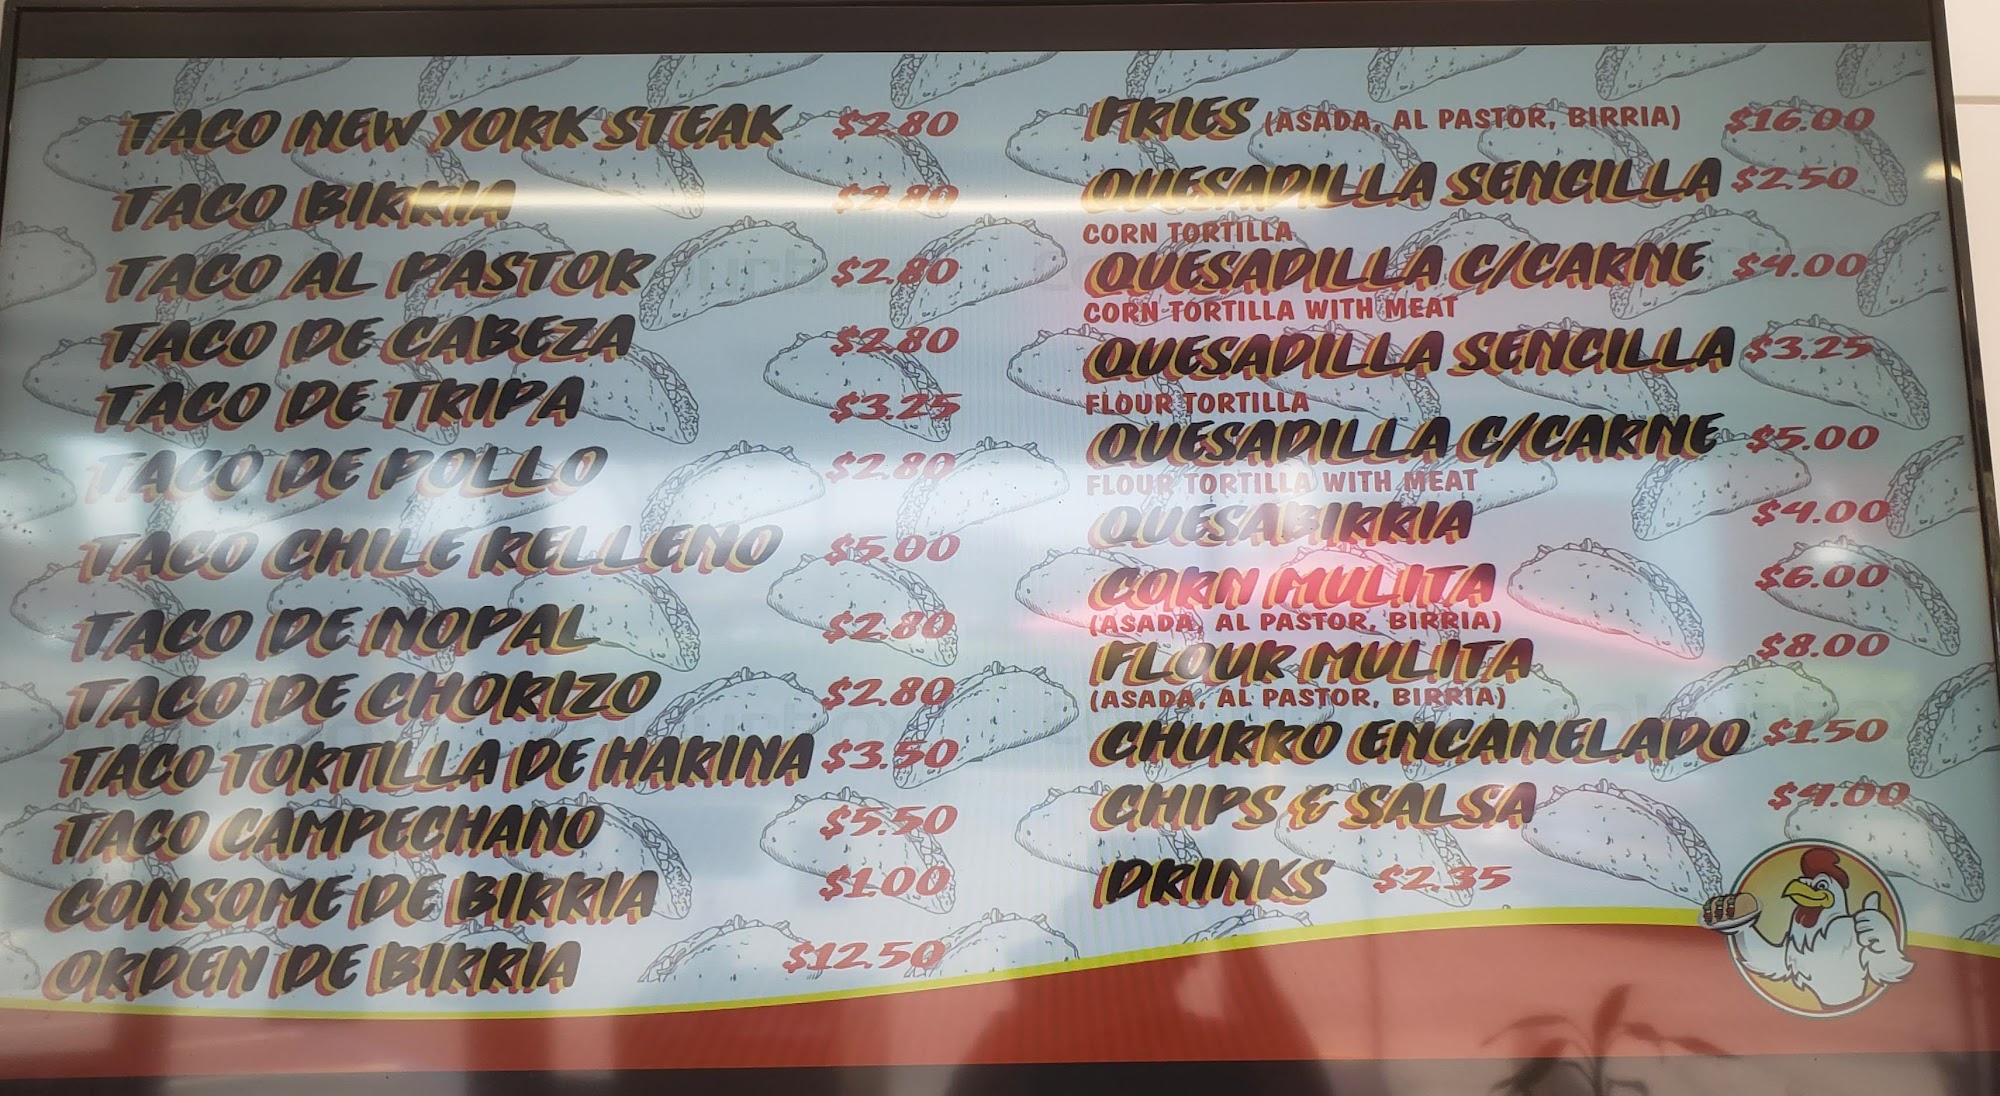 TACO NEW YORK STEAK $2.80
TACO BIRRIA $2.80
TACO AL PASTOR $2.80
TACO DE CABEZA $2.80
TACO DE TRIPA $3.25
TACO DE POLLO $2.80
TACO CHILE RELLENO $5.00
TACO DE NOPAL $2.80
TACO DE CHORIZO $2.80
TACO TORTILLA DE HARINA $3.50
TACO CAMPECHANO $5.50
CONSOME DE BIRRIA $1.00
ORDEN DE BIRRIA $12.50
FRIES (ASADA, AL PASTOR, BIRRIA) $16.00
QUESADILLA SENCILLA $2.50
CORN TORTILLA
QUESADILLA C/CARNE $4.00
CORN TORTILLA WITH MEAT
QUESADILLA SENCILLA $3.25
FLOUR TORTILLA
QUESADILLA C/CARNE $5.00
FLOUR TORTILLA WITH MEAT
QUESABIRRIA $4.00
CORN MULITA $6.00
(ASADA, AL PASTOR, BIRRIA)
FLOUR MULITA $8.00
(ASADA, AL PASTOR, BIRRIA)
CHURRO ENCANELADO $1.50
CHIPS & SALSA $4.00
DRINKS $2.35